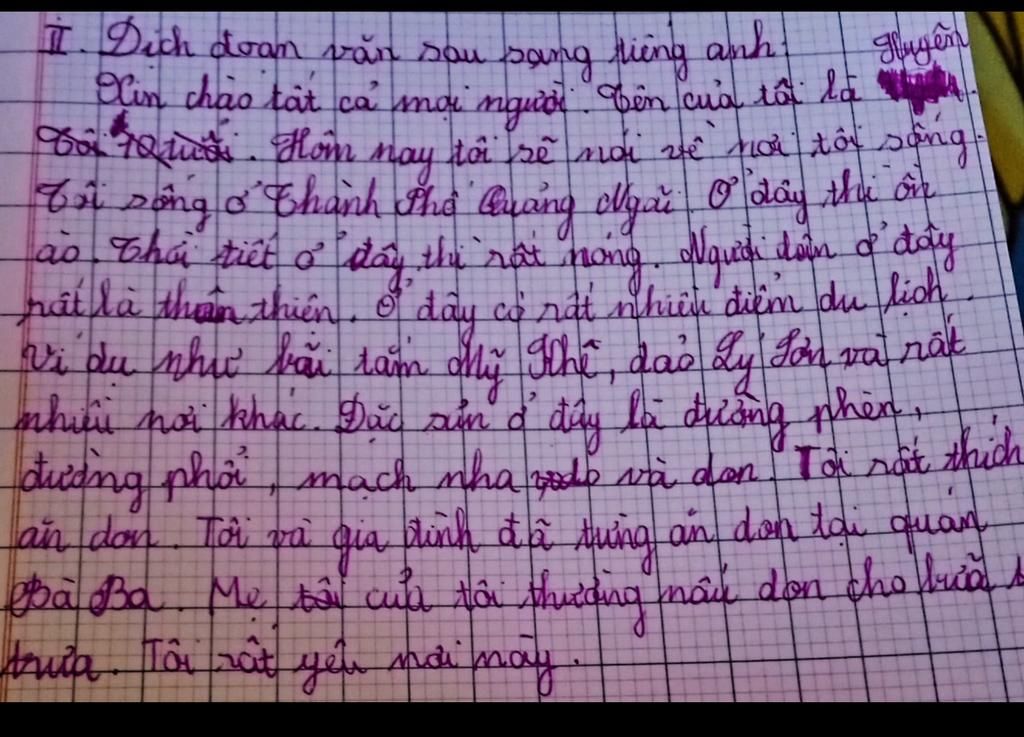 II. Dịch đoạn văn sau sang tiếng anh. Huyên
Xin chào tất cả mọi người. Tên của tôi là
Tôi tuổi. Hôm nay tôi sẽ nói về nơi tôi sống.
Tôi sống ở Thành Phố Quảng Ngãi. Ở đây thì ồn
ào. Thời tiết ở đây thì rất nóng. Người dân ở đây
rất là thân thiện. Ở đây có rất nhiều điểm du lịch.
Ví dụ như bãi tắm Mỹ Khê, đảo Lý Sơn và rất
nhiều nơi khác. Đặc sản ở đây là đường phèn,
đường phổi, mạch nha và don. Tôi rất thích
ăn don. Tôi và gia đình đã từng ăn don tại quán
Bà Ba. Mẹ của tôi thường nấu don cho bữa
trưa. Tôi rất yêu nơi này.